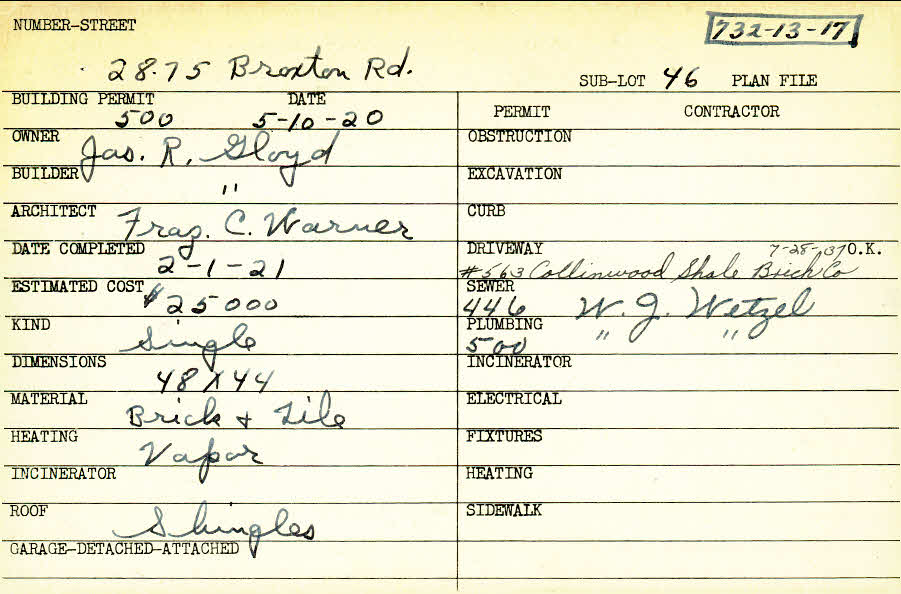 NUMBER-STREET
732-13-17
28.75 Broxton Rd.
SUB-LOT 46 PLAN FILE
BUILDING PERMIT DATE
500 5-10-20
PERMIT CONTRACTOR
OWNER Jas. R. Gloyd
OBSTRUCTION
BUILDER "
EXCAVATION
ARCHITECT Fraz. C. Warner
CURB
DATE COMPLETED
2-1-21
DRIVEWAY 7-28-37 O.K.
#563 Collinwood Shale Brick Co
ESTIMATED COST $25000
SEWER
446 W. J. Wetzel
KIND Single
PLUMBING
500 " "
DIMENSIONS
48 X 44
INCINERATOR
MATERIAL Brick + Tile
ELECTRICAL
HEATING Vapor
FIXTURES
INCINERATOR
HEATING
ROOF Shingles
SIDEWALK
GARAGE-DETACHED-ATTACHED